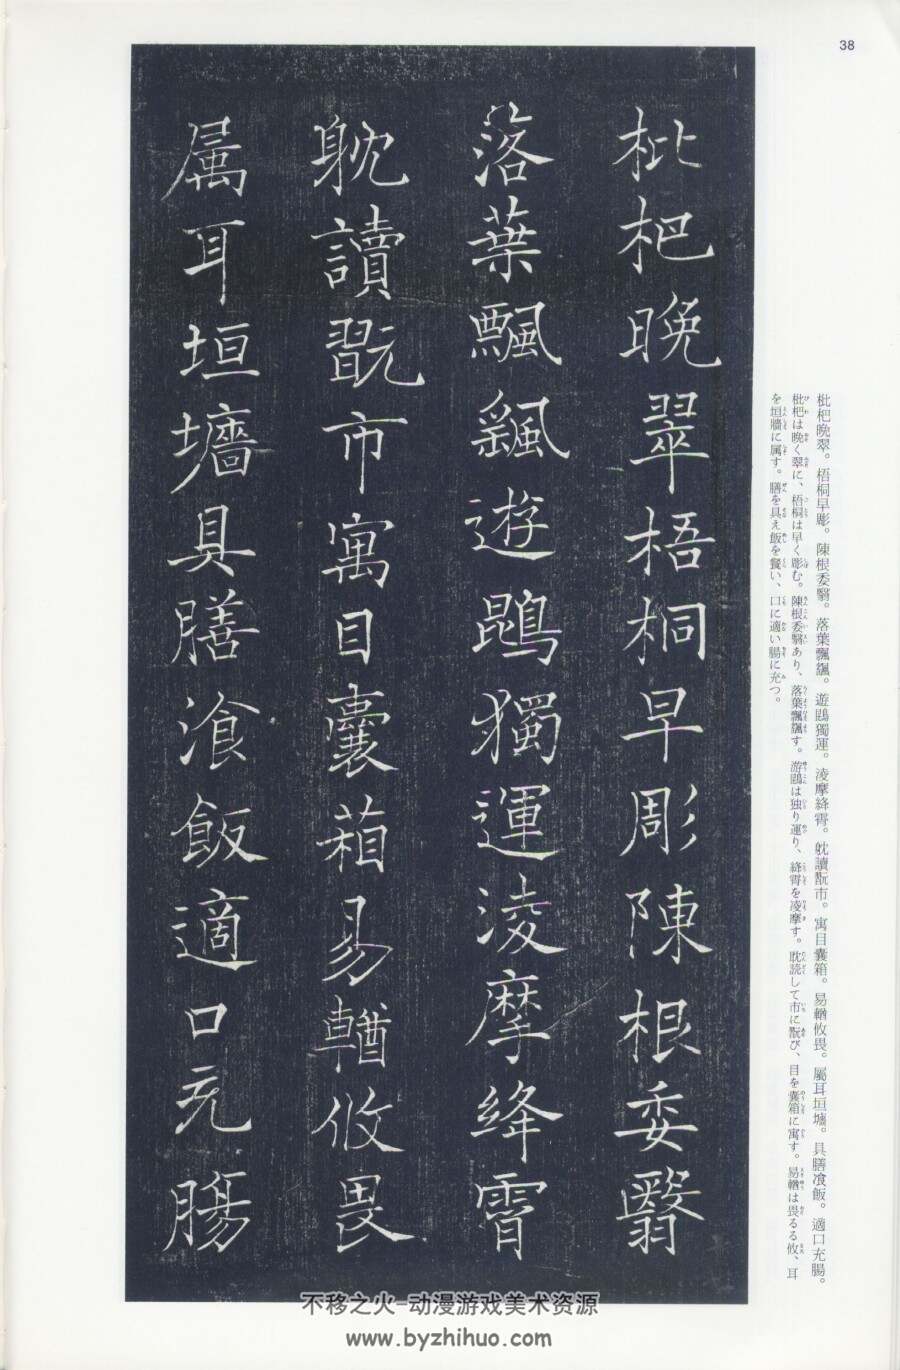 38
枇杷晚翠梧桐早彫陳根委翳
落葉飄颻遊鵾獨運淩摩絳霄
躭讀翫市寓目囊葙易輶攸畏
属耳垣墻具膳飡飯適口充膓
枇杷晩翠。梧桐早彫。陳根委翳。落葉飄颻。遊鵾獨運。淩摩絳霄。躭讀翫市。寓目囊箱。易輶攸畏。屬耳垣墻。具膳飡飯。適口充腸。
枇杷は晩く翠に、梧桐は早く彫む。陳根委翳あり、落葉飄颻す。游鵾は独り運り、絳霄を凌摩す。耽読して市に翫び、目を囊箱に寓す。易輶は畏るる攸、耳
を垣牆に属す。膳を具え飯を餐い、口に適い腸に充つ。
不移之火-动漫游戏美术资源
www.byzhihuo.com